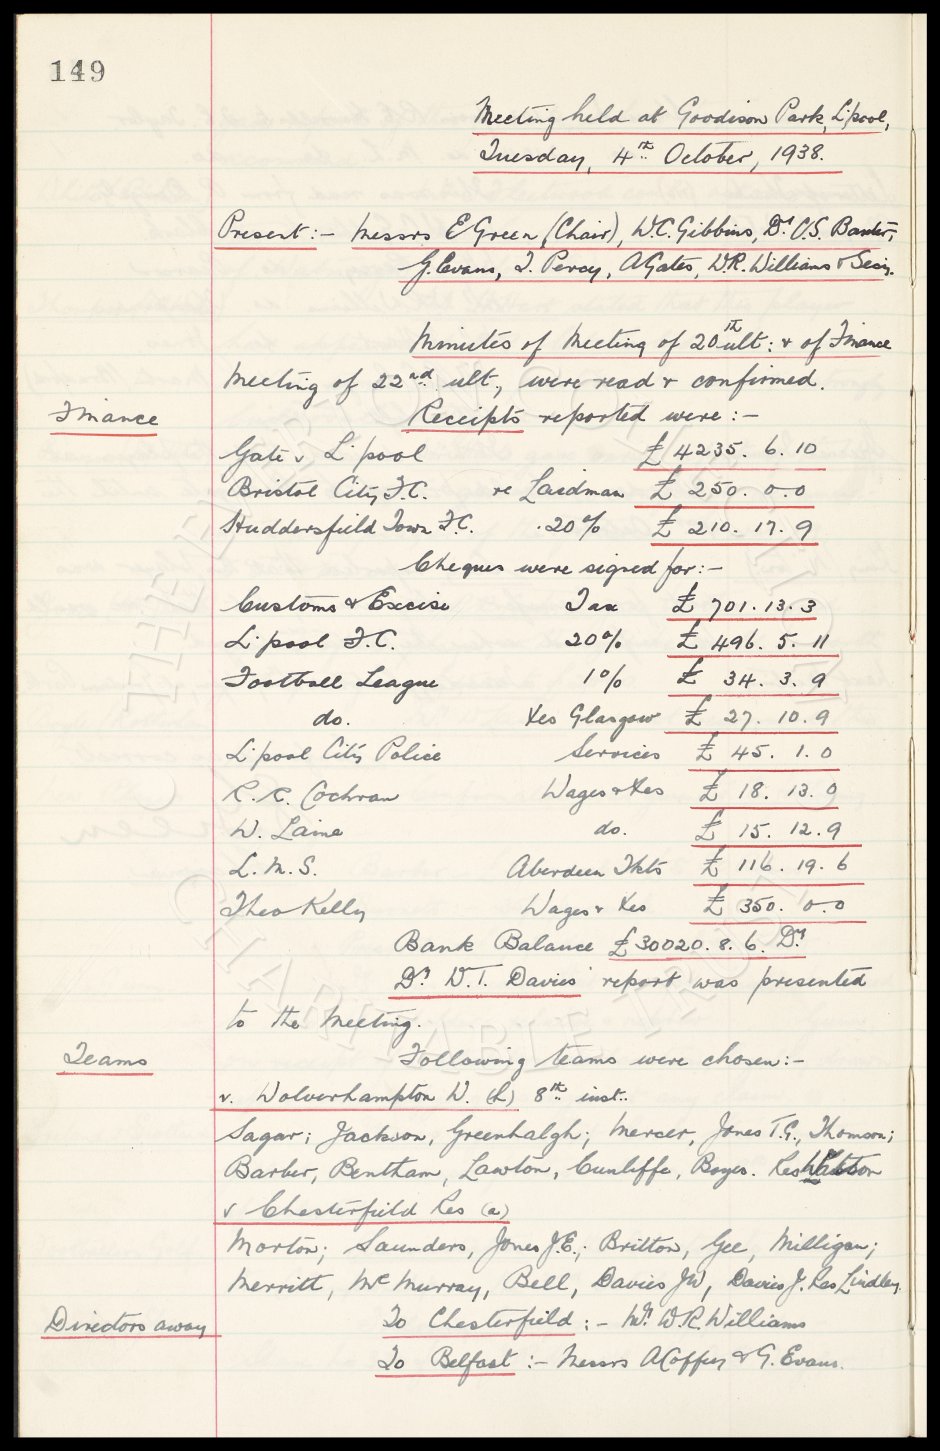 149
Meeting held at Goodison Park, L'pool,
Tuesday, 4th October, 1938.
Present:- Messrs E Green (Chair), W.C. Gibbins, Dr C.S. Baxter,
G. Evans, T. Percy, A Gates, W.R. Williams & Secy.
Minutes of Meeting of 20th ult: & of Finance
Meeting of 22nd ult, were read & confirmed.
Finance
Receipts reported were:-
Gate v L'pool £4235. 6. 10
Bristol City F.C. re Laidman £ 250. 0. 0
Huddersfield Town F.C. 20% £ 210. 17. 9
Cheques were signed for:-
Customs & Excise Tax £ 701. 13. 3
L'pool F.C. 20% £ 496. 5. 11
Football League 1% £ 34. 3. 9
do. Xes Glasgow £ 27. 10. 9
L'pool City Police Services £ 45. 1. 0
R. R. Cochran Wages & Xes £ 18. 13. 0
W. Laine do. £ 15. 12. 9
L. M. S. Aberdeen Tkts £ 116. 19. 6
Theo Kelly Wages & Xes £ 350. 0. 0
Bank Balance £30020. 8. 6. Dr
Dr W.T. Davies' report was presented
to the Meeting.
Teams
Following teams were chosen:-
v. Wolverhampton W. (h) 8th inst.
Sagar; Jackson, Greenhalgh; Mercer, Jones T.G., Thomson;
Barber, Bentham, Lawton, Cunliffe, Boyes. Res Watson
v Chesterfield Res (a)
Morton; Saunders, Jones J.E.; Britton, Gee, Milligan;
Merritt, McMurray, Bell, Davies JW, Davies J. Res Lindley.
Directors away
To Chesterfield:- Mr. W.R. Williams
To Belfast:- Messrs A Coffey & G. Evans.